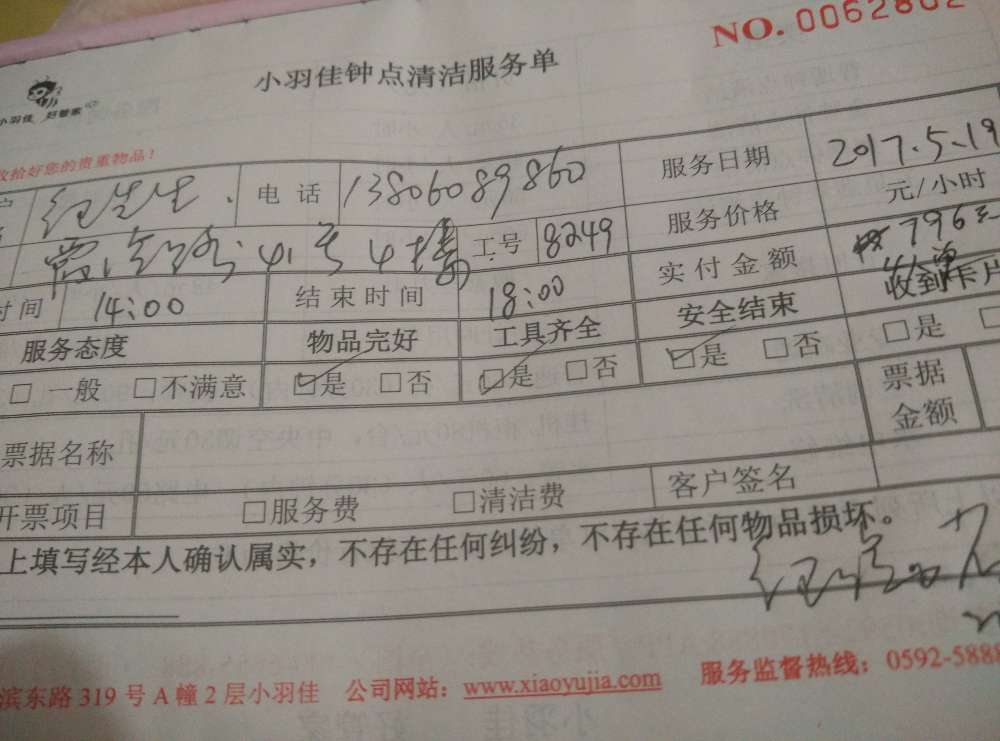 NO. 0062802
小羽佳钟点清洁服务单
小羽佳 好管家
收拾好您的贵重物品!
电话 13806089860 服务日期 2017.5.19
工号 8249 服务价格 元/小时
时间 14:00 结束时间 18:00 实付金额 796元
服务态度 物品完好 工具齐全 安全结束 收到卡片
□ 一般 □不满意 ☑是 □否 ☑是 □否 ☑是 □否 □是
票据名称 票据金额
开票项目 □服务费 □清洁费 客户签名
上填写经本人确认属实，不存在任何纠纷，不存在任何物品损坏。
滨东路 319 号 A 幢 2 层小羽佳 公司网站：www.xiaoyujia.com 服务监督热线：0592-5888